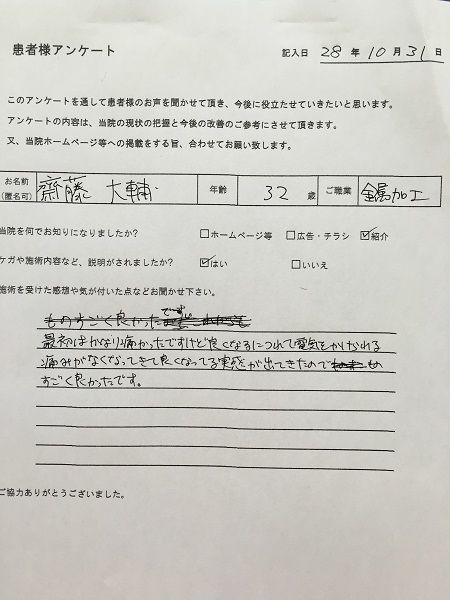 患者様アンケート
記入日 28 年 10 月 31 日
このアンケートを通して患者様のお声を聞かせて頂き、今後に役立たせていきたいと思います。
アンケートの内容は、当院の現状の把握と今後の改善のご参考にさせて頂きます。
又、当院ホームページ等への掲載をする旨、合わせてお願い致します。
お名前(匿名可) 齋藤 大輔 年齢 32 歳 ご職業 金属加工
当院を何でお知りになりましたか? □ホームページ等 □広告・チラシ ☑紹介
ケガや施術内容など、説明がされましたか? ☑はい □いいえ
施術を受けた感想や気が付いた点などお聞かせ下さい。
ものすごく良かったです
最初はかなり痛かったですけど良くなるにつれて電気をかけられる
痛みがなくなってきて良くなってる実感が出てきたので もの
すごく良かったです。
ご協力ありがとうございました。